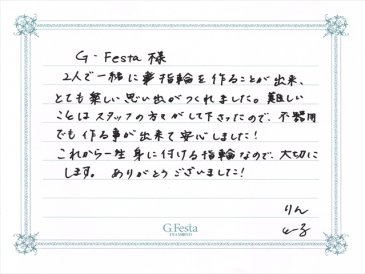 G・Festa 様
2人で一緒に指輪を作ることが出来、
とても楽しい思い出がつくれました。難しい
ことはスタッフの方々がして下さったので、不器用
でも作る事が出来て安心しました!
これから一生身に付ける指輪なので、大切に
します。 ありがとうございました!
りん
G.Festa